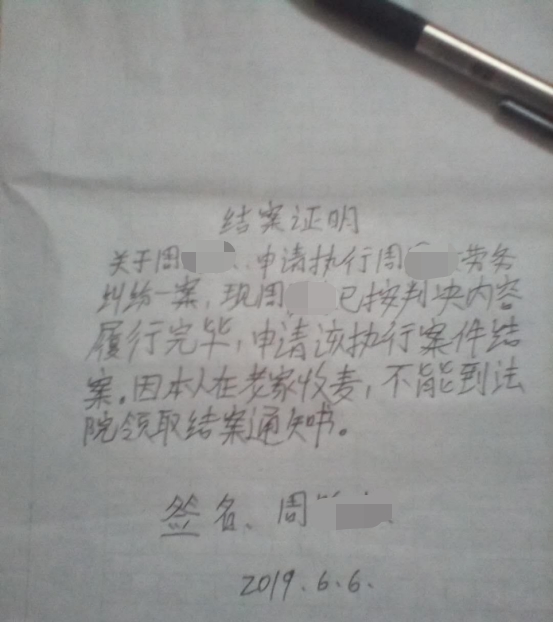 结案证明
关于周 申请执行周 劳务
纠纷一案,现周 已按判决内容
履行完毕,申请该执行案件结
案。因本人在老家收麦,不能到法
院领取结案通知书。
签名、周
2019.6.6.